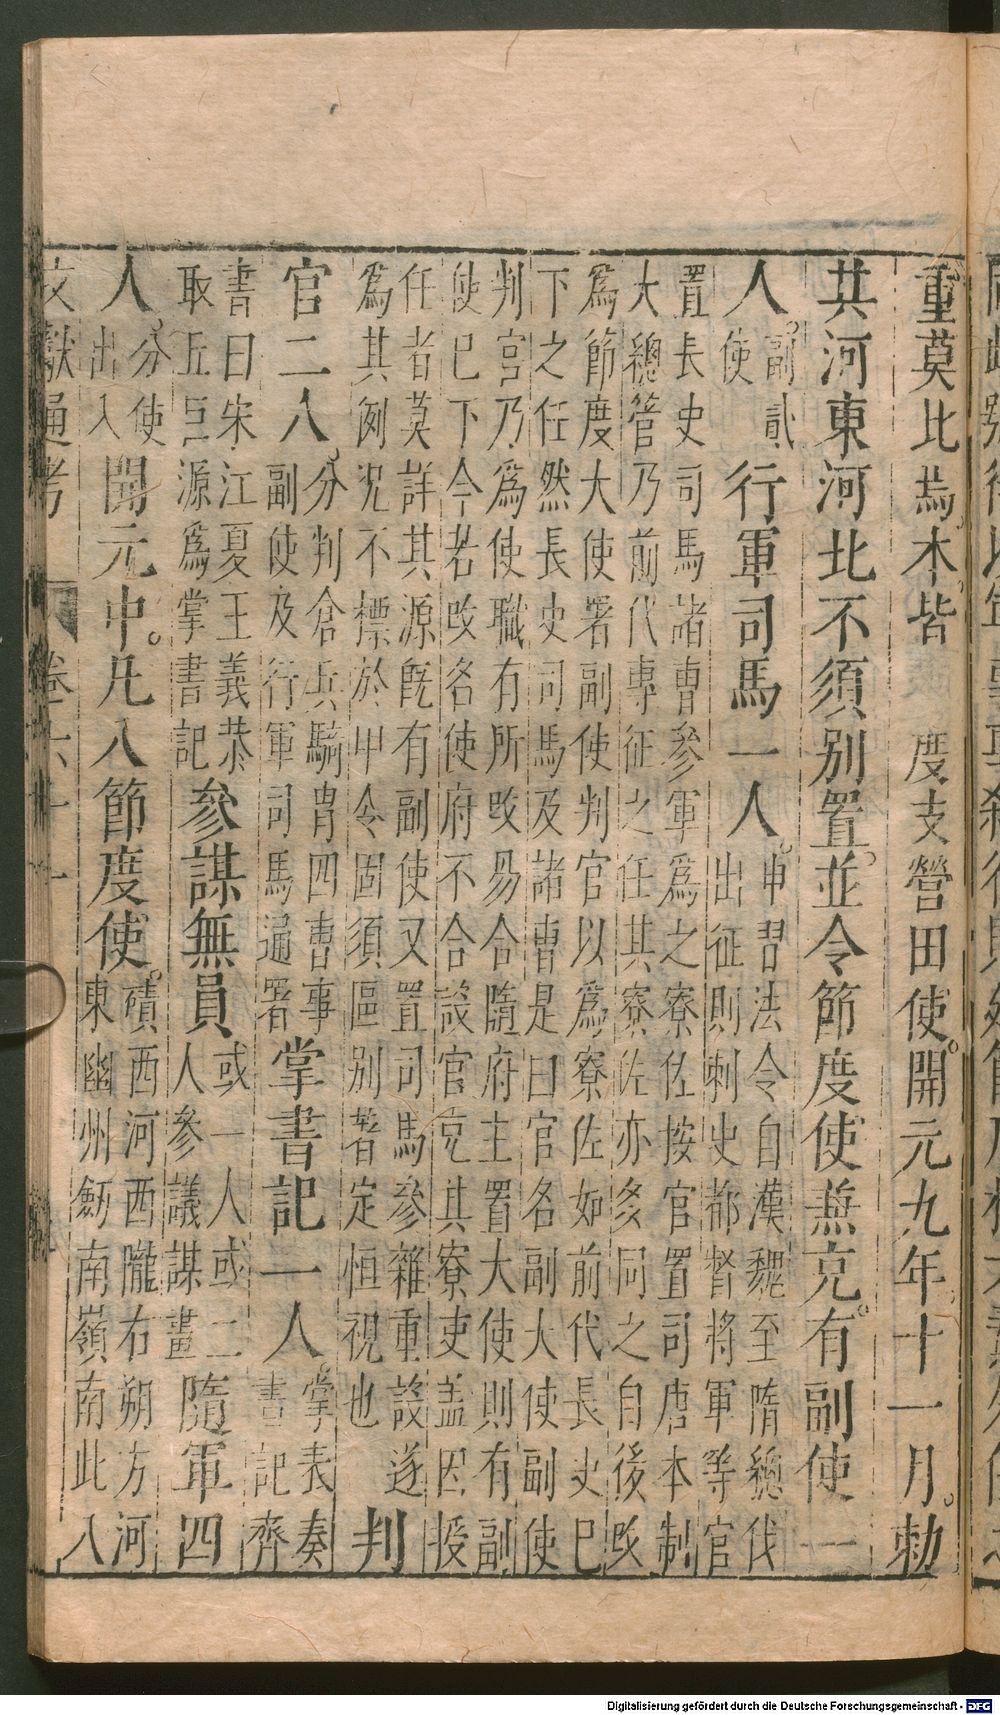 重莫比焉木皆 度支營田使開元九年十一月勑
共河東河北不須别置並令節度使兼充有副使一
人副貳使行軍司馬一人申習法令自漢魏至隋總伐
出征則刺史都督將軍等官
置長史司馬諸曹參軍爲之寮佐按官置司唐本制
大總管乃前代專征之任其寮佐亦多同之自後改
爲節度大使署副使判官以爲寮佐如前代長史已
下之任然長史司馬及諸曹是曰官名副大使副使
判官乃爲使職有所改易合隨府主置大使則有副
使已下今若改名使府不合設官充其寮吏盖因授
任者莫詳其源旣有副使又置司馬參雜重設遂
爲其例况不標於甲令固須區别著定恒視也判
官二人分判倉兵騎胄四曹事副使及行軍司馬通署掌書記一人掌表奏書記齊
書曰朱江夏王義恭取丘巨源爲掌書記參謀無員或一人或二人參議謀畫隨軍四
人分使出入開元中凡八節度使磧西河西隴右朔方河東幽州劍南嶺南此八
文獻通考 卷六十一
Digitalisierung gefördert durch die Deutsche Forschungsgemeinschaft - DFG